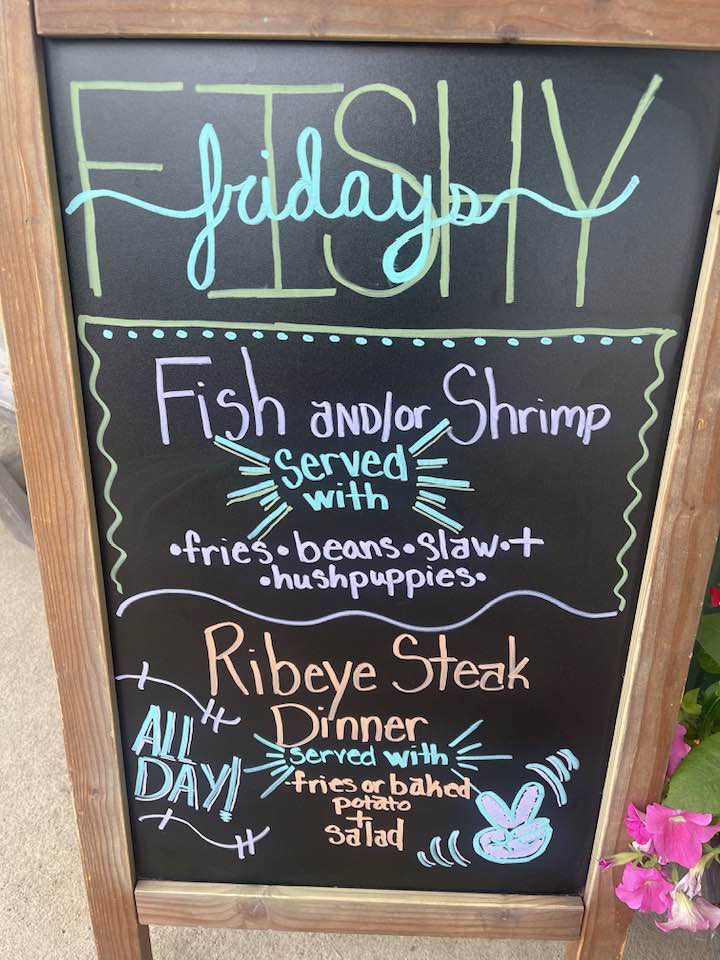 FISHY
fridays
Fish AND/or Shrimp
Served
with
•fries•beans•slaw•+
•hushpuppies•
Ribeye Steak
Dinner
served with
fries or baked
potato
+
salad
ALL
DAY!